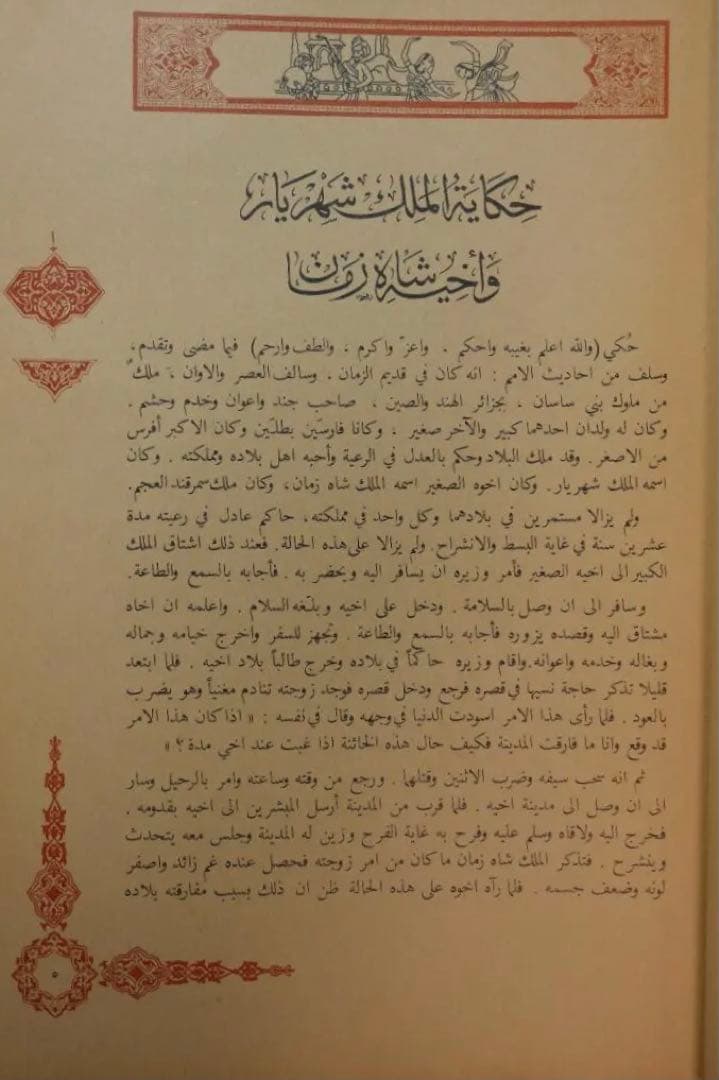 حِكَايَةُ المَلِكِ شَهْرِيَار
وَأَخِيهِ شَاه زَمَان
١
حُكي (والله اعلم بغيبه واحكم ، واعزّ واكرم ، والطف وارحم) فيما مضى وتقدم،
وسلف من احاديث الامم : انه كان في قديم الزمان . وسالف العصر والاوان ، ملكٌ
من ملوك بني ساسان ، بجزائر الهند والصين ، صاحب جند واعوان وخدم وحشم .
وكان له ولدان احدهما كبير والآخر صغير ، وكانا فارسّين بطلّين وكان الاكبر أفرس
من الاصغر . وقد ملك البلاد وحكم بالعدل في الرعية وأحبه اهل بلاده ومملكته . وكان
اسمه الملك شهريار . وكان اخوه الصغير اسمه الملك شاه زمان، وكان ملك سمرقند العجم.
ولم يزالا مستمرين في بلادهما وكل واحد في مملكته، حاكم عادل في رعيته مدة
عشرين سنة في غاية البسط والانشراح. ولم يزالا على هذه الحالة. فعند ذلك اشتاق الملك
الكبير الى اخيه الصغير فأمر وزيره ان يسافر اليه ويحضر به . فأجابه بالسمع والطاعة.
وسافر الى ان وصل بالسلامة . ودخل على اخيه وبلّغه السلام . واعلمه ان اخاه
مشتاق اليه وقصده يزوره فأجابه بالسمع والطاعة . وتجهز للسفر واخرج خيامه وجماله
وبغاله وخدمه واعوانه. واقام وزيره حاكماً في بلاده وخرج طالباً بلاد اخيه . فلما ابتعد
قليلا تذكر حاجة نسيها في قصره فرجع ودخل قصره فوجد زوجته تنادم مغنياً وهو يضرب
بالعود . فلما رأى هذا الامر اسودت الدنيا في وجهه وقال في نفسه : « اذا كان هذا الامر
قد وقع وانا ما فارقت المدينة فكيف حال هذه الخائنة اذا غبت عند اخي مدة ؟ »
ثم انه سحب سيفه وضرب الاثنين وقتلهما . ورجع من وقته وساعته وامر بالرحيل وسار
الى ان وصل الى مدينة اخيه . فلما قرب من المدينة أرسل المبشرين الى اخيه بقدومه .
فخرج اليه ولاقاه وسلم عليه وفرح به غاية الفرح وزين له المدينة وجلس معه يتحدث
وينشرح . فتذكر الملك شاه زمان ما كان من امر زوجته فحصل عنده غم زائد واصفر
لونه وضعف جسمه . فلما رآه اخوه على هذه الحالة ظن ان ذلك بسبب مفارقته بلاده
٥